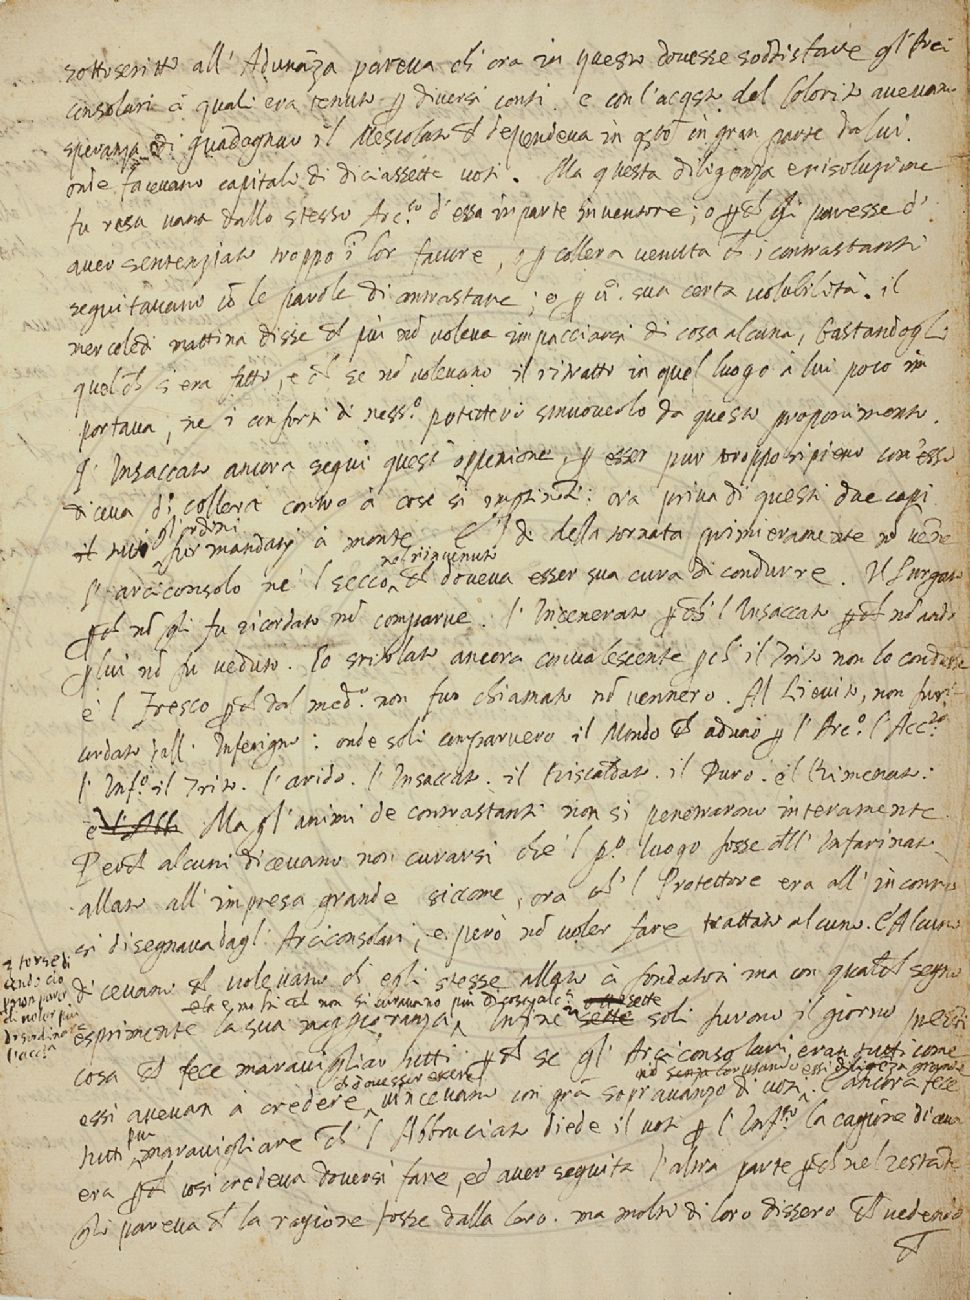 sottoscritto all' Adunãza pareva ch' ora in questo dovesse sodisfare gl' Arci
consolari à quali era tenuto p diversi conti. e con l'acqsto del Colorito avevano
speranza di guadagnar il Mescolato ch dependeva in qsto in gran parte da lui.
onde facevano capitale di diciassette voti. Ma questa diligenza e risoluzione
fu resa vana dallo stesso Arc.lo d'essa in parte inventore; o pch gli paresse d'
aver sentenziato troppo ĩ lor favore, o p collera venuta ch i contrastanti
seguitavano cõ le parole di contrastare; o p ũ. sua certa volubilità. il
mercoledi mattina disse ch più nõ voleva impacciarsi di cosa alcuna, bastandogli
quel ch s'era fatto, e ch se nõ volevano il ritratto in quel luogo à lui poco im
portava, ne i conforti di ness.o potettero smuoverlo da questo proponimento.
L' Insaccato ancora segui quest' oppenione, p esser pur troppo ripieno com'esso
diceva di collera contro à cose sì : ora priva di questi due capi
gl'ordini
fur mandati à monte. E 'l dì della tornata primieramente nõ vẽne
nol rinvenuto
l' arciconsolo ne' l secco, ch doveva esser sua cura di condurre. Il Purgato
pch nõ gli fu ricordato nõ comparve. l' Incenerato pch l'Insaccato pch nõ andò
p lui nõ fu veduto. Lo stritolato ancora convalescente pch il Trito non lo condusse
e 'l Fresco pch dal med.o non fur chiamato nõ vennero. Al Lievito, non fu ri
cordato dall' Inferigno: onde soli comparvero il Mondo ch adunò p l' Arc.o l'Acc.a
l'Inf.o il Trito. l'arido. l'Insaccato. il Riscaldato. il Puro. e 'l Rimenato.
e Ma gl'animi de contrastanti non si penetrarono interamente.
Perch alcuni dicevano non curarsi che 'l p.o luogo fosse all' Infarinato
allato all' impresa grande siccome, ora ch' l Protettore era all' incontro
si disegnava dagl' Arciconsolari, e però nõ voler fare trattato alcuno. E Alcuni
dicevano ch volevano ch egli stesse allato à fondatori ma con qualch segno
e forse di
cendo ciò
di voler più
l'acc.a
soli furono il giorno
esprimente la sua maggioranza, Infine
cosa ch fece maravigliar tutti pch se gl' Arciconsolari, eran tutti come
di dover esser
essi avevan à credere vincevano con grã sopravanzo di voti. E ancora fece
più
tutti maravigliare ch' l Abbruciato diede il voto p l' Inf.to la cagione diceva
era pch così credeva doversi fare, ed aver seguita l'altra parte pch nel restante
gli pareva ch la ragione fosse dalla loro. ma molti di loro dissero ch vedendo
ch